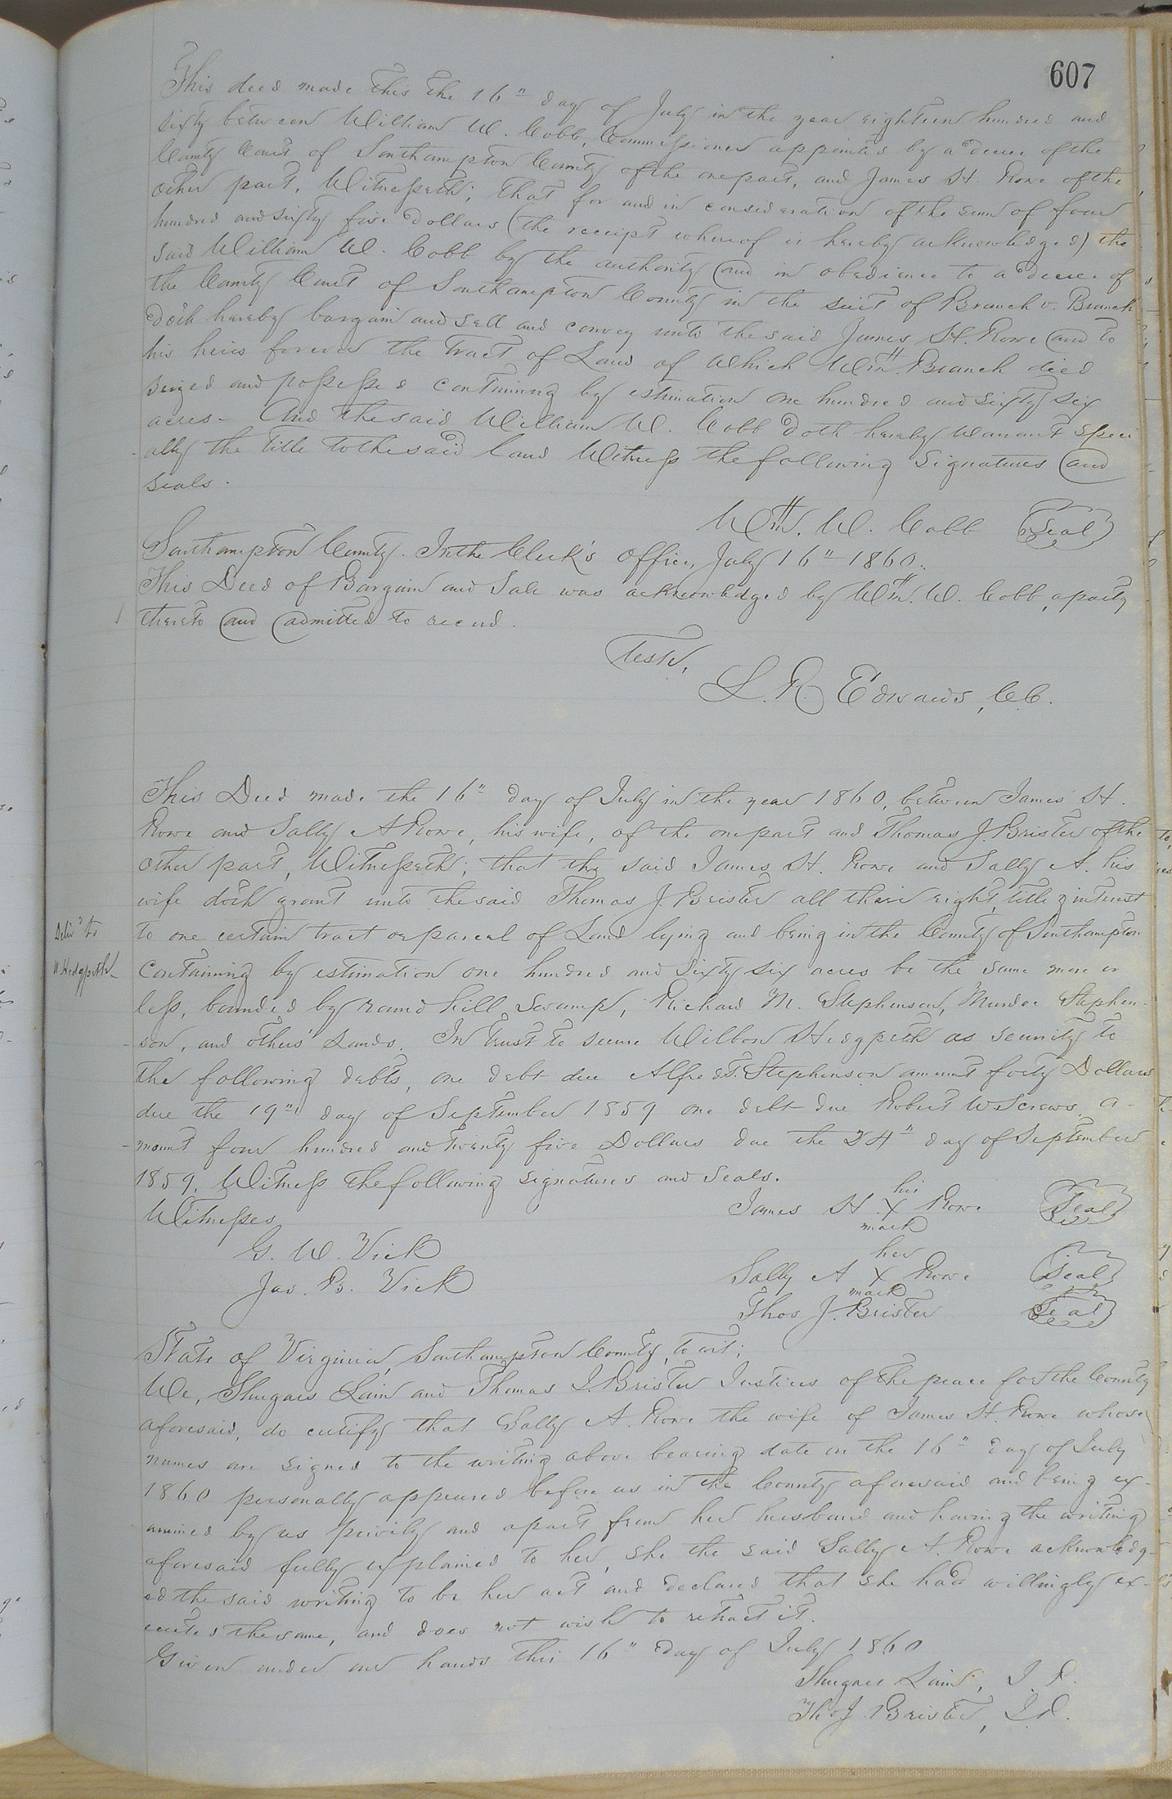 607
This deed made this the 16" day of July in the year eighteen hundred and
sixty between William W. Cobb, Commissioner appointed by a decree of the
County Court of Southampton County of the one part, and James H. Rowe of the
other part, Witnesseth; that for and in consideration of the sum of four
hundred and sixty five dollars (the receipt whereof is hereby acknowledged) the
said William W. Cobb by the authority and in obedience to a decree of
the County Court of Southampton County in the suit of Branch v. Branch
doth hereby bargain and sell and convey unto the said James H. Rowe and to
his heirs forever the tract of Land of which Wm. Branch died
seized and possessed containing by estimation one hundred and sixty six
acres - And the said William W. Cobb doth hereby warrant speci
ally the title to the said land Witness the following signatures and
seals.
Wm. W. Cobb Seal
Southampton County. In the Clerk's office, July 16" 1860.
This Deed of Bargain and Sale was acknowledged by Wm. W. Cobb, a party
thereto and admitted to record.
Teste,
L. R. Edwards, C.C.
This Deed made the 16" day of July in the year 1860, between James H.
Rowe and Sally A Rowe, his wife, of the one part and Thomas J. Brister of the
other part, Witnesseth; that the said James H. Rowe and Sally A. his
wife doth grant unto the said Thomas J. Brister all their right, title & interest
Deliv'd to
to one certain tract or parcel of Land lying and being in the County of Southampton
W Hedgpeth
containing by estimation one hundred and sixty six acres be the same more or
less, bounded by round hill Swamp, Richard M. Stephenson, Stephen-
son, and others' Lands. In Trust to secure Wilbon Hedgpeth as security to
the following debts, one debt due Alfred T. Stephenson amount forty Dollars
due the 19th day of September 1859 one debt due Robert W Screws, a-
mount four hundred and twenty five Dollars due the 24" day of September
1859. Witness the following signatures and seals.
Witnesses
James H his X mark Rowe Seal
G. W. Vick
Jas. B. Vick
Sally A her X mark Rowe Seal
Thos J. Brister Seal
State of Virginia, Southampton County, to wit;
We, Shugars Lain and Thomas J. Brister Justices of the peace for the County
aforesaid, do certify that Sally A. Rowe the wife of James H. Rowe whose
names are signed to the writing above bearing date on the 16" day of July
1860 personally appeared before us in the County aforesaid and being ex-
amined by us privily and apart from her husband and having the writing
aforesaid fully explained to her, she the said Sally A. Rowe acknowledg-
ed the said writing to be her act and declared that she had willingly ex-
ecuted the same, and does not wish to retract it.
Given under our hands this 16" day of July 1860
Shugars Lain, J.P.
Tho J. Brister, J.P.